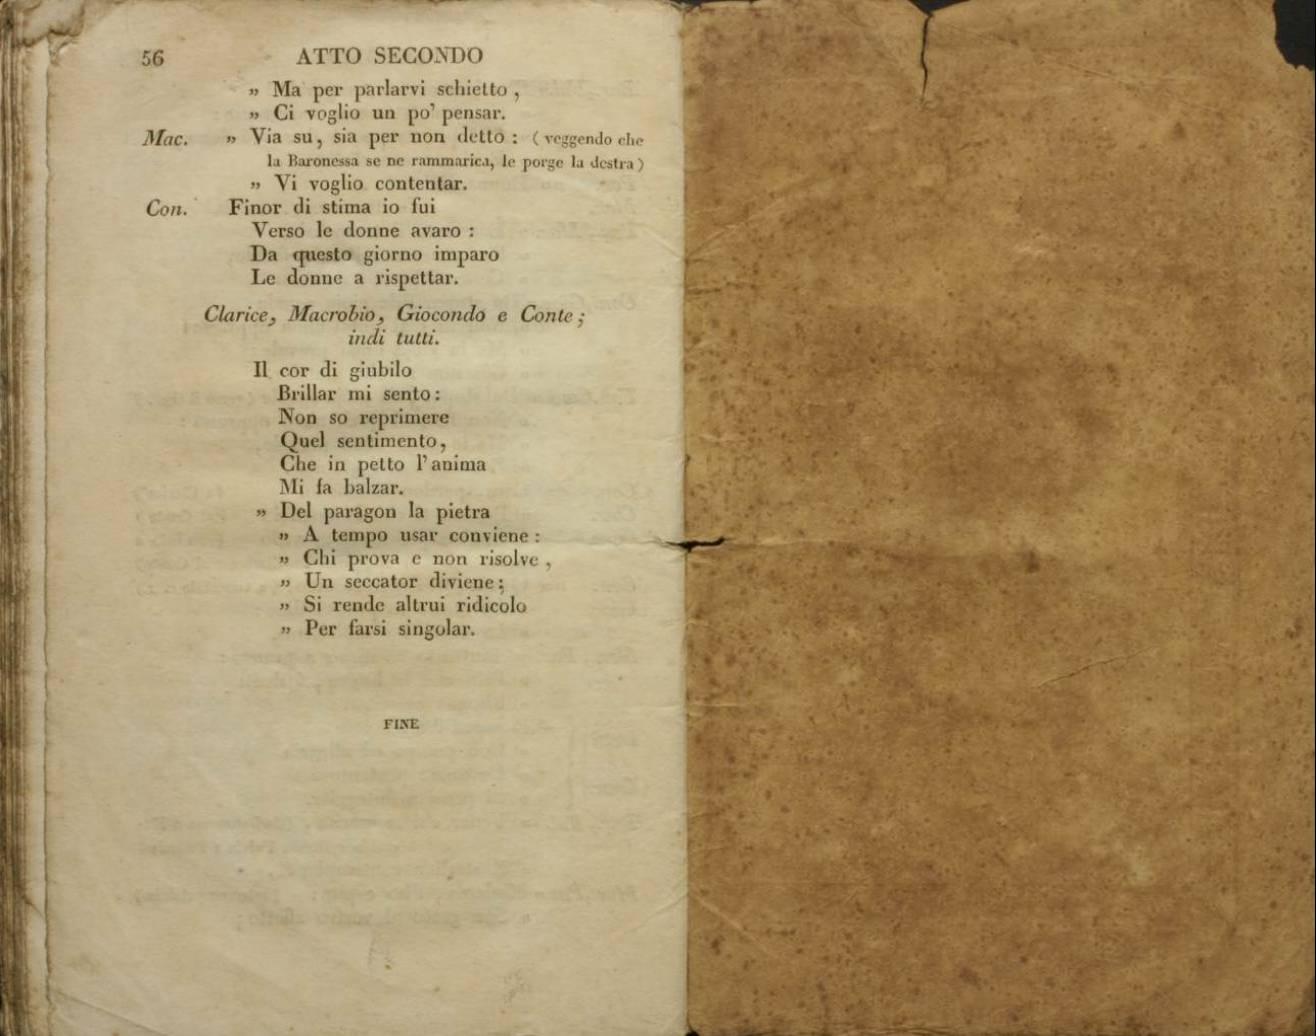 56 ATTO SECONDO
" Ma per parlarvi schietto,
" Ci voglio un po' pensar.
Mac. " Via su, sia per non detto: (veggendo che
la Baronessa se ne rammarica, le porge la destra)
" Vi voglio contentar.
Con. Finor di stima io fui
Verso le donne avaro:
Da questo giorno imparo
Le donne a rispettar.
Clarice, Macrobio, Giocondo e Conte;
indi tutti.
Il cor di giubilo
Brillar mi sento:
Non so reprimere
Quel sentimento,
Che in petto l'anima
Mi fa balzar.
" Del paragon la pietra
" A tempo usar conviene:
" Chi prova e non risolve,
" Un seccator diviene;
" Si rende altrui ridicolo
" Per farsi singolar.
FINE